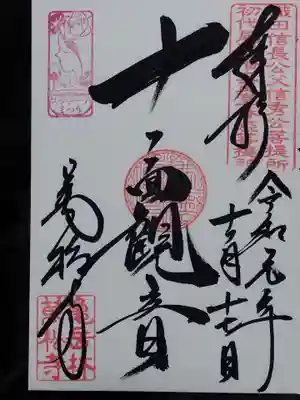 奉拝
織田信長公父信秀公菩提所
十一面観音
令和元年
十二月十七日
萬松寺
亀岳林
萬松寺